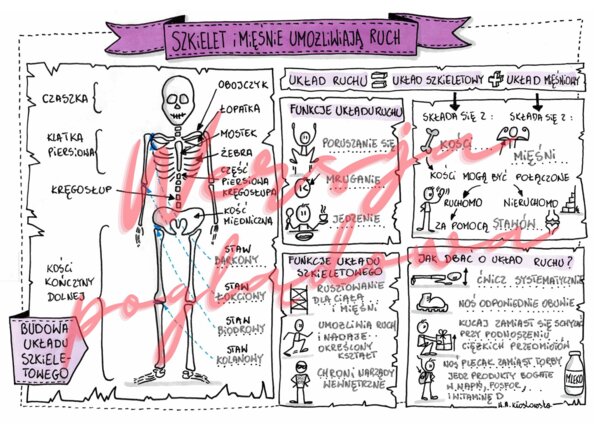 SZKIELET i MIĘŚNIE UMOŻLIWIAJĄ RUCH
CZASZKA
KLATKA
PIERSIOWA
KRĘGOSŁUP
KOŚCI
KOŃCZYNY
DOLNEJ
BUDOWA
UKŁADU
SZKIELE-
TOWEGO
OBOJCZYK
ŁOPATKA
MOSTEK
ŻEBRA
CZĘŚĆ
PIERSIOWA
KRĘGOSŁUPA
KOŚĆ
MIEDNICZNA
STAW
BARKOWY
STAW
ŁOKCIOWY
STAW
BIODROWY
STAW
KOLANOWY
UKŁAD RUCHU = UKŁAD SZKIELETOWY + UKŁAD MIĘŚNIOWY
FUNKCJE UKŁADU RUCHU
PORUSZANIE SIĘ
MRUGANIE
JEDZENIE
SKŁADA SIĘ Z:
KOŚCI
SKŁADA SIĘ Z:
MIĘŚNI
KOŚCI MOGĄ BYĆ POŁĄCZONE
RUCHOMO
NIERUCHOMO
ZA POMOCĄ STAWÓW
FUNKCJE UKŁADU
SZKIELETOWEGO
RUSZTOWANIE
DLA CIAŁA
I MIĘŚNI
UMOŻLIWIA RUCH
I NADAJE
OKREŚLONY
KSZTAŁT
CHRONI NARZĄDY
WEWNĘTRZNE
JAK DBAĆ O UKŁAD RUCHU?
ĆWICZ SYSTEMATYCZNIE
NOŚ ODPOWIEDNIE OBUWIE
KUCAJ ZAMIAST SIĘ SCHYLAĆ
PRZY PODNOSZENIU
CIĘŻKICH PRZEDMIOTÓW
NOŚ PLECAK ZAMIAST TORBY
JEDZ PRODUKTY BOGATE
W WAPŃ, FOSFOR,
I WITAMINĘ D
MLEKO
Wersja
poglądowa